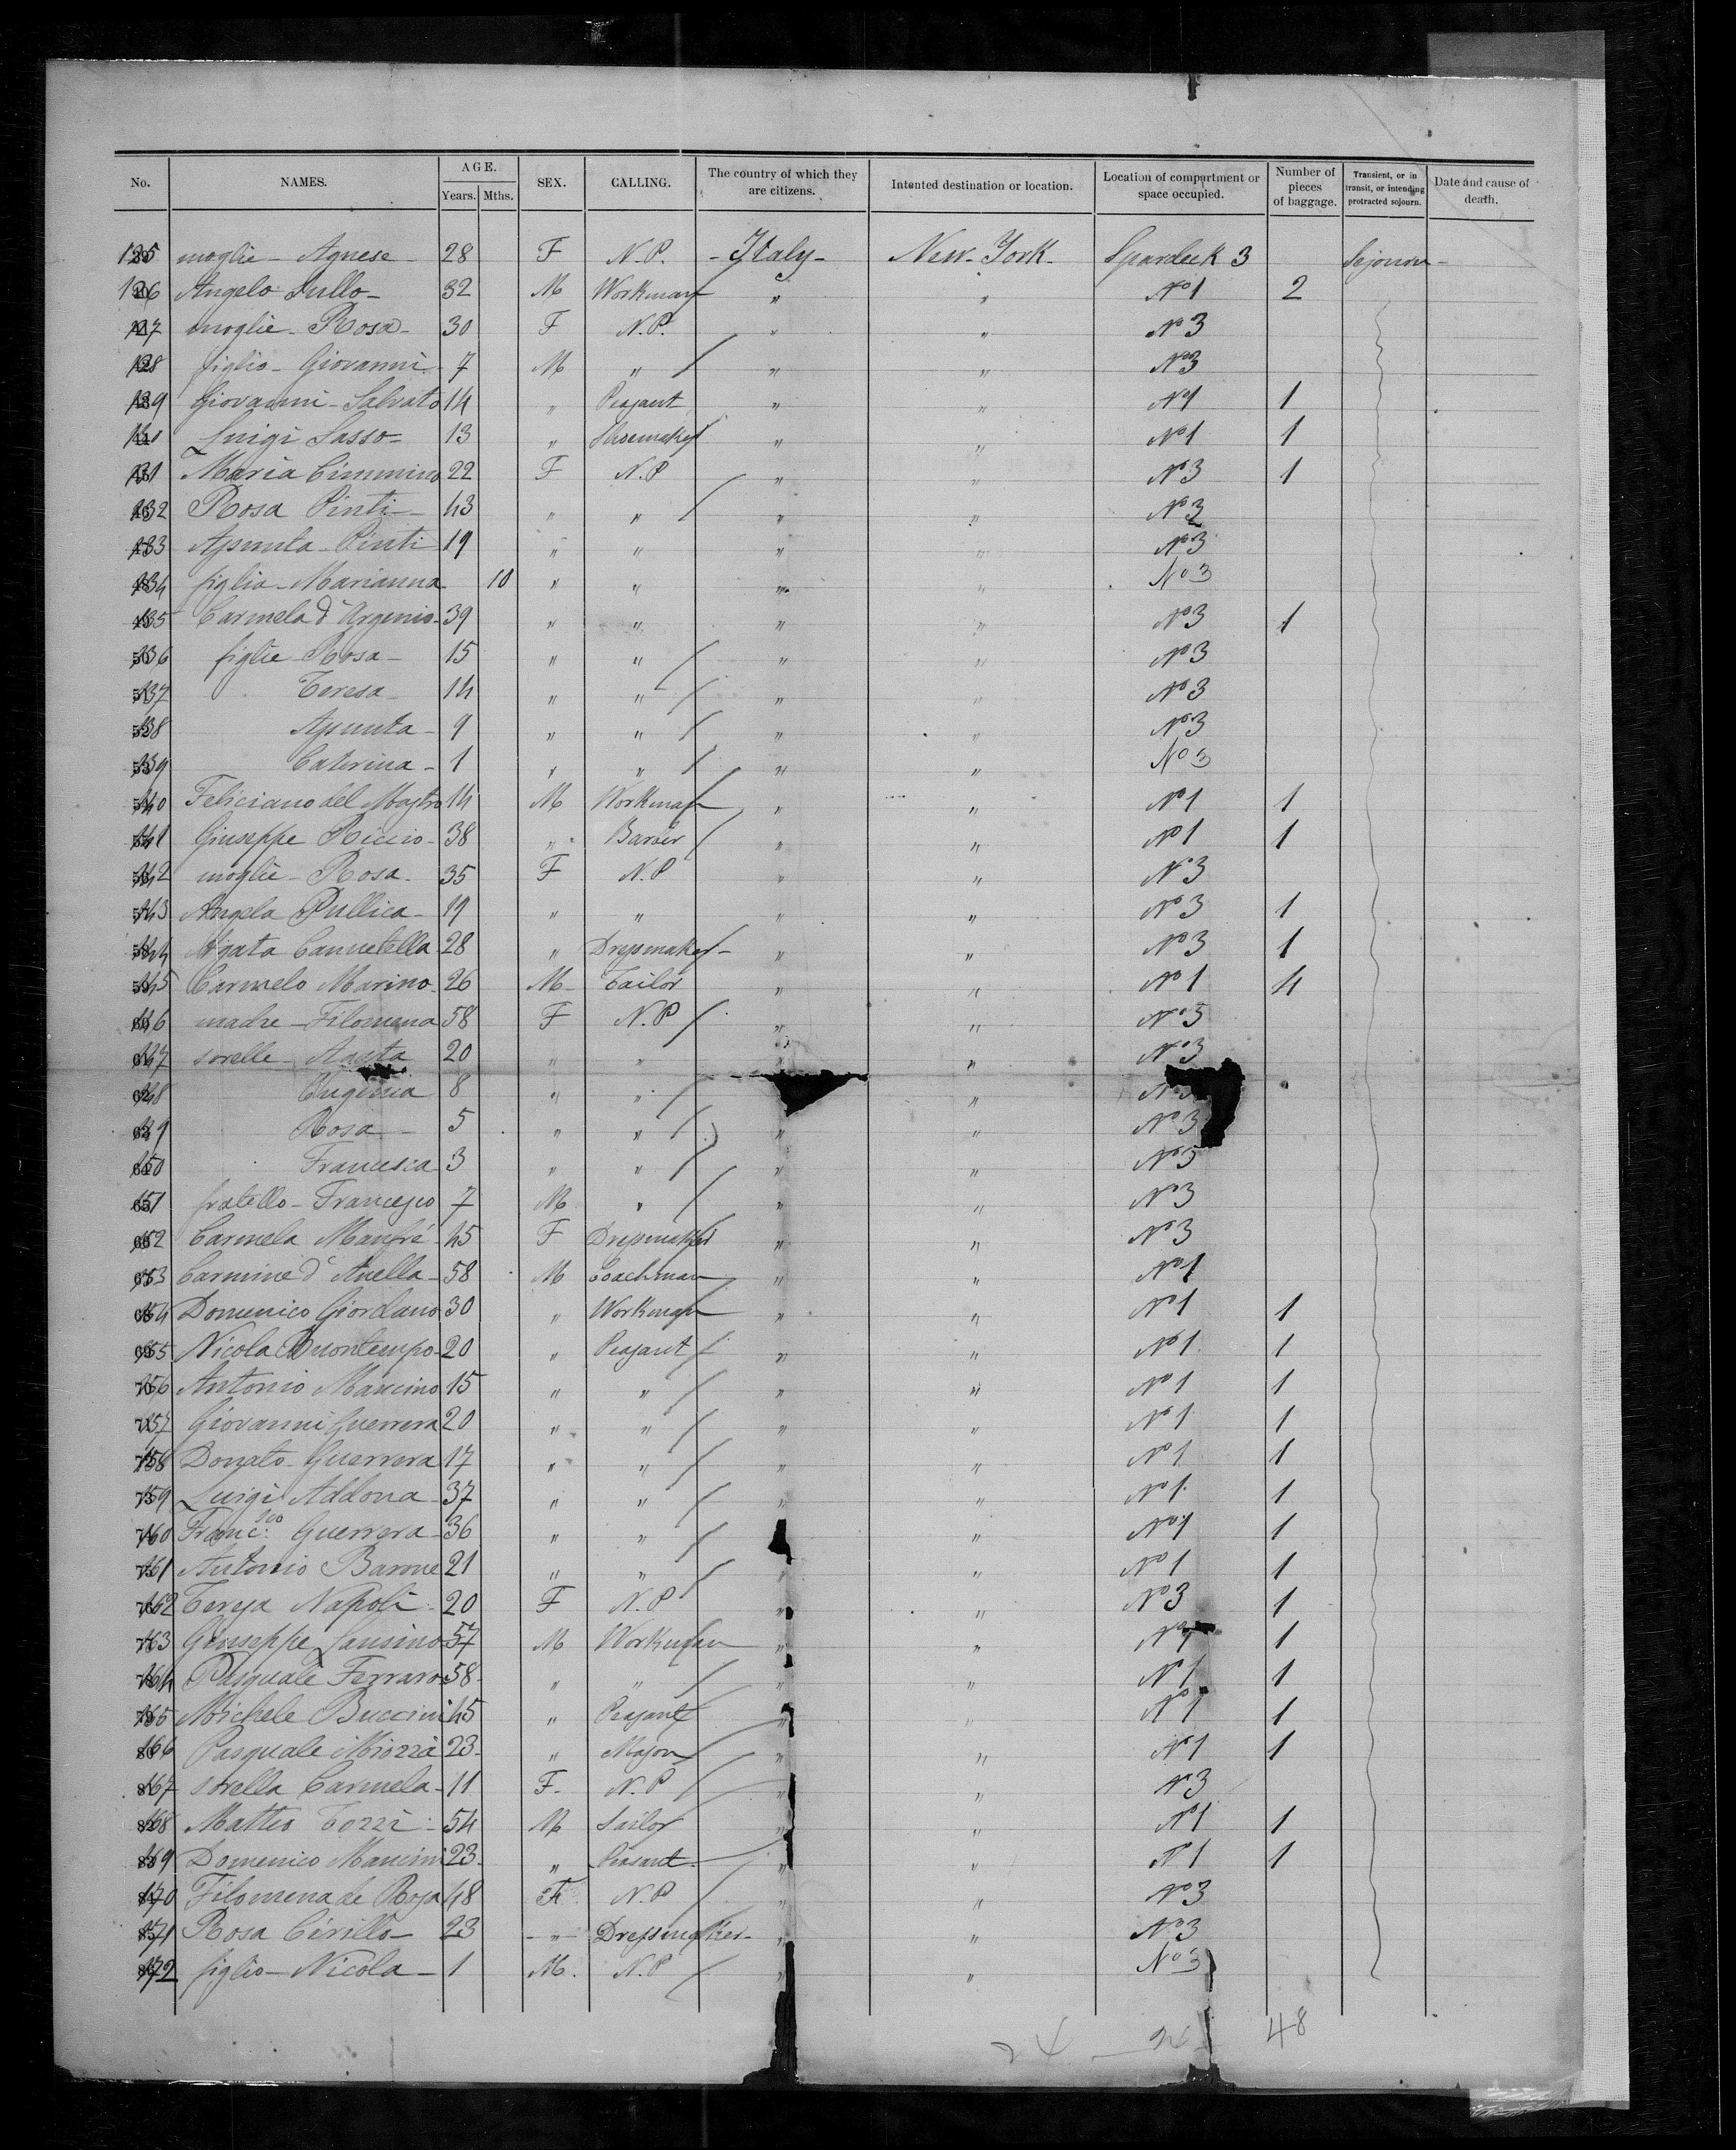 No. NAMES. AGE. Years. Mths. SEX. CALLING. The country of which they are citizens. Intented destination or location. Location of compartment or space occupied. Number of pieces of baggage. Transient, or in transit, or intending protracted sojourn. Date and cause of death.
125 moglie - Agnese - 28 F N.P. - Italy - New-York - Spardeck 3 Sejourn -
126 Angelo Iullo - 32 M Workman " " No 1 2
127 moglie - Rosa - 30 F N.P. " " No 3
128 figlio - Giovanni - 7 M " " " No 3
129 Giovanni - Salvato 14 " Peasant " " No 1 1
130 Luigi Sasso - 13 " Shoemaker " " No 1 1
131 Maria Cimmino 22 F N.P " " No 3 1
132 Rosa Pinti - 43 " " " " No 3
133 Assunta - Pinti 19 " " " " No 3
134 figlia - Marianna 10 " " " " No 3
135 Carmela d'Argenio - 39 " " " " No 3 1
136 figlie - Rosa - 15 " " " " No 3
137 Teresa - 14 " " " " No 3
138 Assunta - 9 " " " " No 3
139 Caterina - 1 " " " " No 3
140 Feliciano del Mastro 14 M Workman " " No 1 1
141 Giuseppe Riccio - 38 " Barber " " No 1 1
142 moglie - Rosa - 35 F N.P " " No 3
143 Angela Pullica - 19 " " " " No 3 1
144 Agata Cannetella - 28 " Dressmaker - " " No 3 1
145 Carmelo Marino - 26 M - Tailor " " No 1 4
146 madre - Filomena 58 F N.P " " No 3
147 sorelle - Agata 20 " " " " No 3
148 Eugenia 8 " " " No 3
149 Rosa - 5 " " " " No 3
150 Francesca - 3 " " " " No 3
151 fratello - Francesco 7 M " " " No 3
152 Carmela Manfré - 45 F Dressmaker " " No 3
153 Carmine d'Anella - 58 M Coachman " " No 1
154 Domenico Giordano 30 " Workman " " No 1 1
155 Nicola Buontempo - 20 " Peasant " " No 1 1
156 Antonio Mancino 15 " " " " No 1 1
157 Giovanni Guerrera 20 " " " " No 1 1
158 Donato - Guerrera 17 " " " " No 1 1
159 Luigi Addona - 37 " " " " No 1 1
160 Franc.sco Guerrera - 36 " " " No 1 1
161 Antonio Barone 21 " " " " No 1 1
162 Teresa Napoli - 20 F N.P " " No 3 1
163 Giuseppe Sansino 57 M Workman " " No 1 1
164 Pasquale Ferraro 58 - " " " " No 1 1
165 Michele Buccini 45 " Peasant " " No 1 1
166 Pasquale Miozza 23 - " Mason " " No 1 1
167 sorella Carmela - 11 F - N.P " " No 3
168 Matteo Tozzi - 54 M Sailor " " No 1 1
169 Domenico Mancini 23 - " Peasant - " " No 1 1
170 Filomena de Rosa 48 F N.P " " No 3
171 Rosa Cirillo - 23 - " - Dressmaker - " " No 3
172 figlio - Nicola - 1 M. N.P " " No 3
48